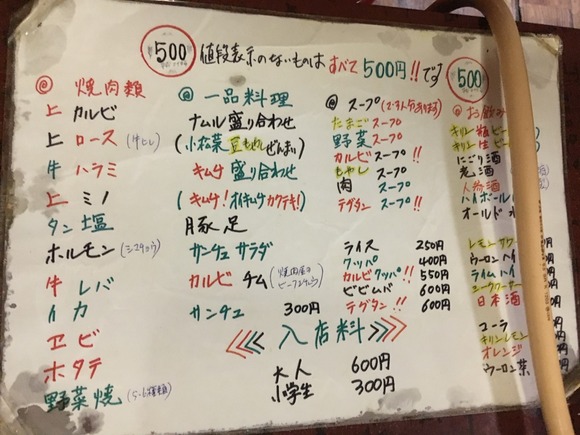 500 値段表示のないものは すべて500円!!です 500
◎ 焼肉類
上 カルビ
上 ロース (牛ヒレ)
牛 ハラミ
上 ミノ
タン塩
ホルモン (シマチョウ)
牛 レバ
イカ
エビ
ホタテ
野菜焼 (5~6種類)
◎ 一品料理
ナムル盛り合わせ
(小松菜 豆もやし ぜんまい)
キムチ 盛り合わせ
(キムチ! オイキムチ カクテキ!)
豚足
サンチュ サラダ
カルビ チム
サンチュ 300円
◎ スープ
たまご スープ
野菜 スープ
カルビ スープ!!
もやし スープ
肉 スープ
テグタン スープ!!
ライス 250円
クッパ 400円
カルビクッパ!! 550円
ビビムバ 600円
テグタン!! 600円
入店料
大人 600円
小学生 300円
◎ お飲み
キリン 瓶 ビー
キリン 生 ビー
にごり酒
人参酒
ハイボール
オールド 水
レモン サワー
ウーロン ハイ
ライム ハイ
日本酒
コーラ
キリンレモン
オレンジ
ウーロン茶